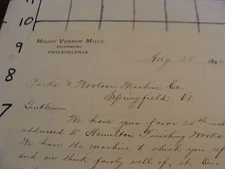 11
10
9
8
7
MOUNT VERNON MILLS,
PHILADELPHIA
Aug 25
Parks & Woolson Machine Co
Springfield Vt.
Gentlemen
We have your favor 20th inst
addressed to Hamilton Finishing Works
have the machine to which you
and we think fairly well of it. Our